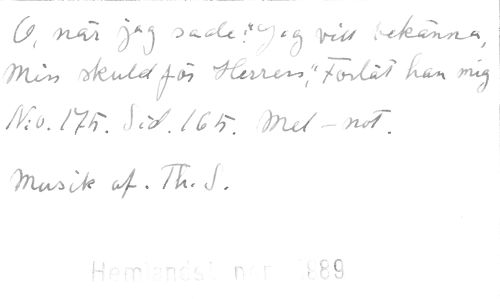 O, när jag sade: "Jag vill bekänna,
Min skuld för Herren", Förlät han mig
N:o. 175. Sid. 165. Mel-not.
Musik af. Th. S.
Hemlandst 89